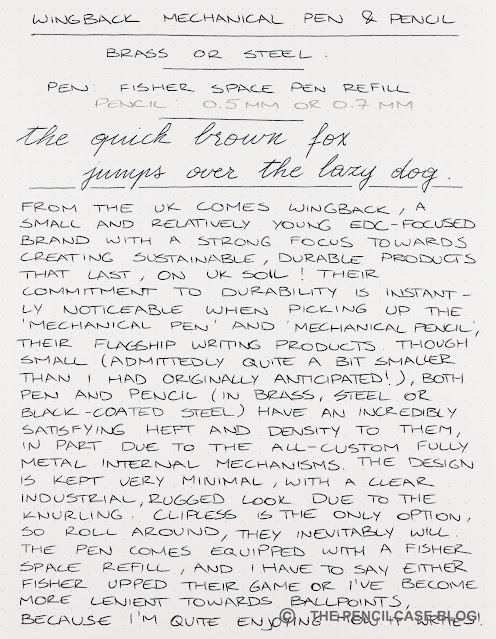 WINGBACK MECHANICAL PEN & PENCIL
BRASS OR STEEL.
PEN: FISHER SPACE PEN REFILL
PENCIL: 0.5MM OR 0.7MM
the quick brown fox
jumps over the lazy dog.
FROM THE UK COMES WINGBACK, A
SMALL AND RELATIVELY YOUNG EDC-FOCUSED
BRAND WITH A STRONG FOCUS TOWARDS
CREATING SUSTAINABLE, DURABLE PRODUCTS
THAT LAST, ON UK SOIL! THEIR
COMMITMENT TO DURABILITY IS INSTANT-
LY NOTICEABLE WHEN PICKING UP THE
'MECHANICAL PEN' AND 'MECHANICAL PENCIL',
THEIR FLAGSHIP WRITING PRODUCTS. THOUGH
SMALL (ADMITTEDLY QUITE A BIT SMALLER
THAN I HAD ORIGINALLY ANTICIPATED!), BOTH
PEN AND PENCIL (IN BRASS, STEEL OR
BLACK-COATED STEEL) HAVE AN INCREDIBLY
SATISFYING HEFT AND DENSITY TO THEM,
IN PART DUE TO THE ALL-CUSTOM FULLY
METAL INTERNAL MECHANISMS. THE DESIGN
IS KEPT VERY MINIMAL, WITH A CLEAR
INDUSTRIAL, RUGGED LOOK DUE TO THE
KNURLING. CLIPLESS IS THE ONLY OPTION,
SO ROLL AROUND, THEY INEVITABLY WILL.
THE PEN COMES EQUIPPED WITH A FISHER
SPACE REFILL, AND I HAVE TO SAY EITHER
FISHER UPPED THEIR GAME OR I'VE BECOME
MORE LENIENT TOWARDS BALLPOINTS,
BECAUSE I'M QUITE ENJOYING HOW IT WRITES.
© THE PENCILCASE BLOG